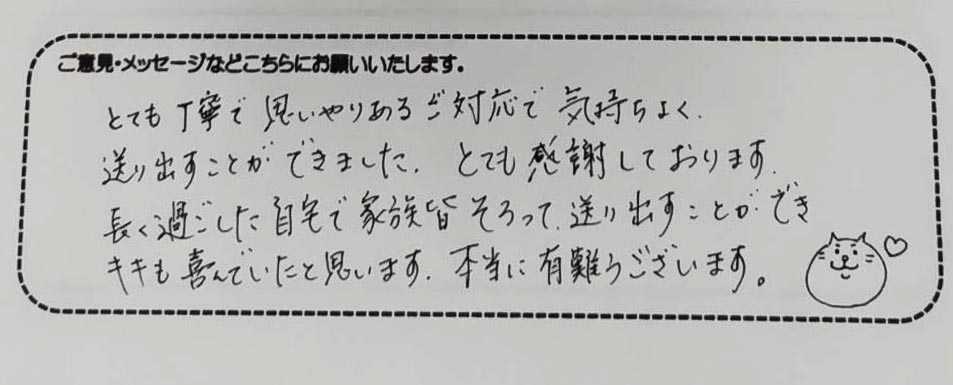 ご意見・メッセージなどこちらにお願いいたします。
とても丁寧で思いやりあるご対応で気持ちよく
送り出すことができました。とても感謝しております。
長く過ごした自宅で家族皆そろって、送り出すことができ
キキも喜んでいたと思います。本当に有難うございます。